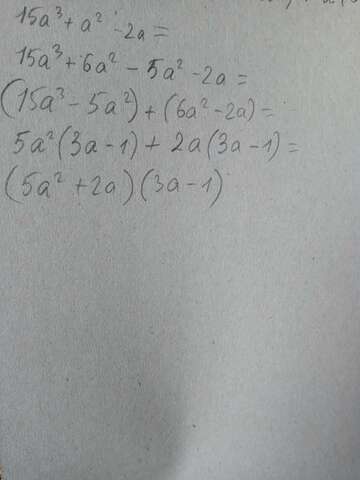 15a³ + a² - 2a =
15a³ + 6a² - 5a² - 2a =
(15a³ - 5a²) + (6a² - 2a) =
5a² (3a - 1) + 2a (3a - 1) =
(5a² + 2a) (3a - 1)